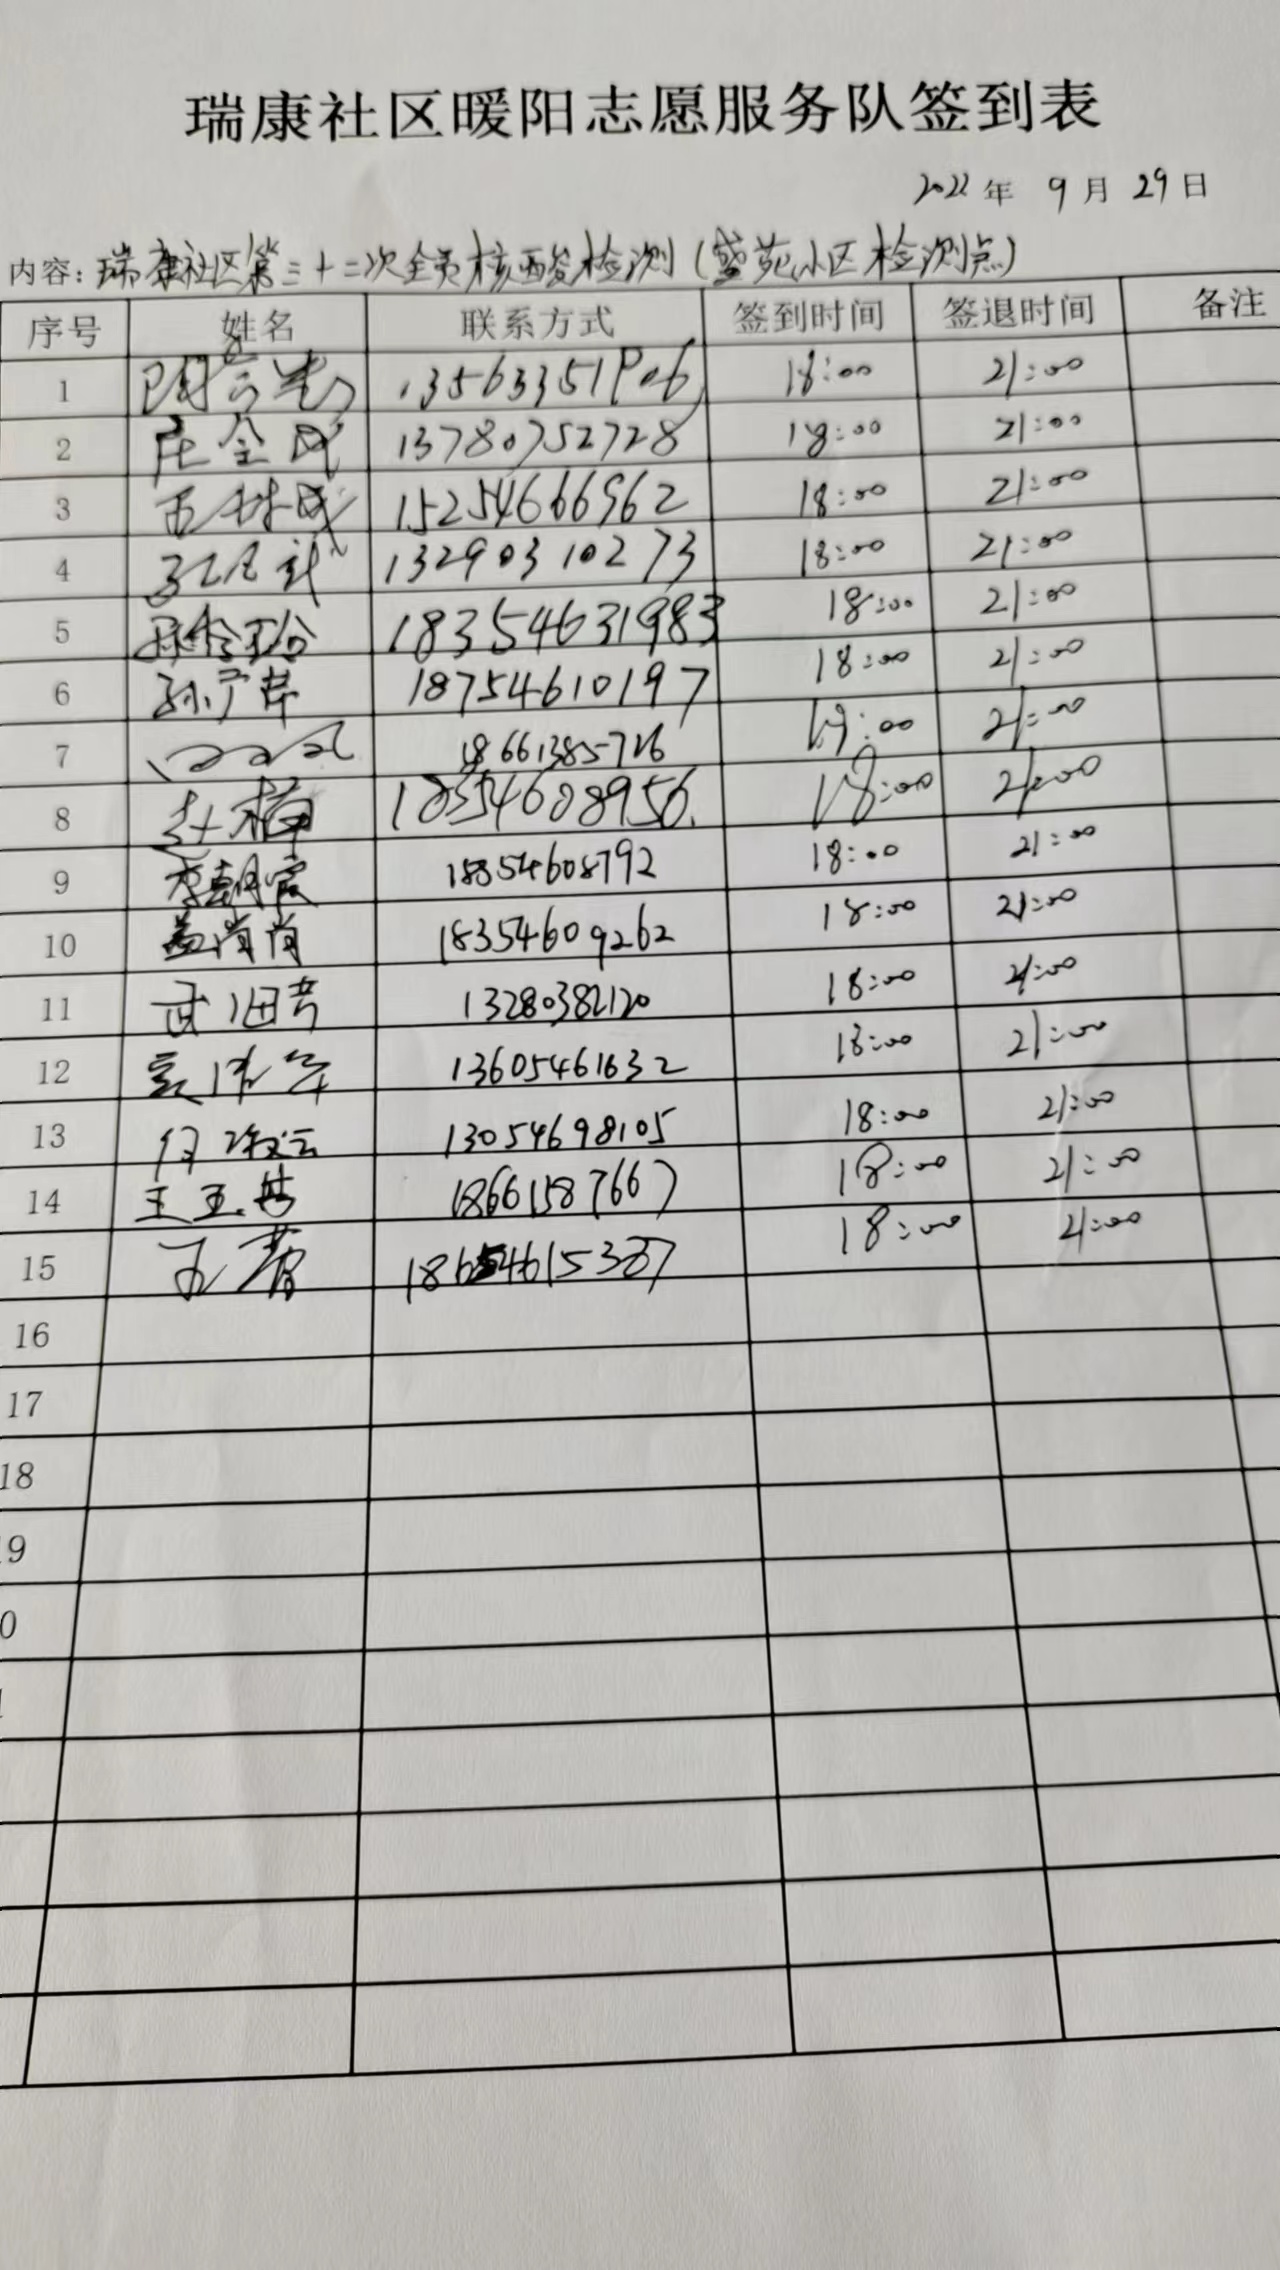 瑞康社区暖阳志愿服务队签到表
2022年 9月 29日
内容：瑞康社区第三十二次全员核酸检测（盛苑小区检测点）
序号 姓名 联系方式 签到时间 签退时间 备注
1 18:00 21:00
2 庄全民 13780752728 18:00 21:00
3 15254666962 18:00 21:00
4 13290310273 18:00 21:00
5 18354631983 18:00 21:00
6 孙广芹 18754610197 18:00 21:00
7 18661385716 18:00 21:00
8 杜梅 18354608956 18:00 21:00
9 李朝霞 18854608792 18:00 21:00
10 孟尚尚 18354609262 18:00 21:00
11 13280382120 18:00 21:00
12 13605461632 18:00 21:00
13 13054698105 18:00 21:00
14 18661587667 18:00 21:00
15 18654615387 18:00 21:00
16
17
18
19
0